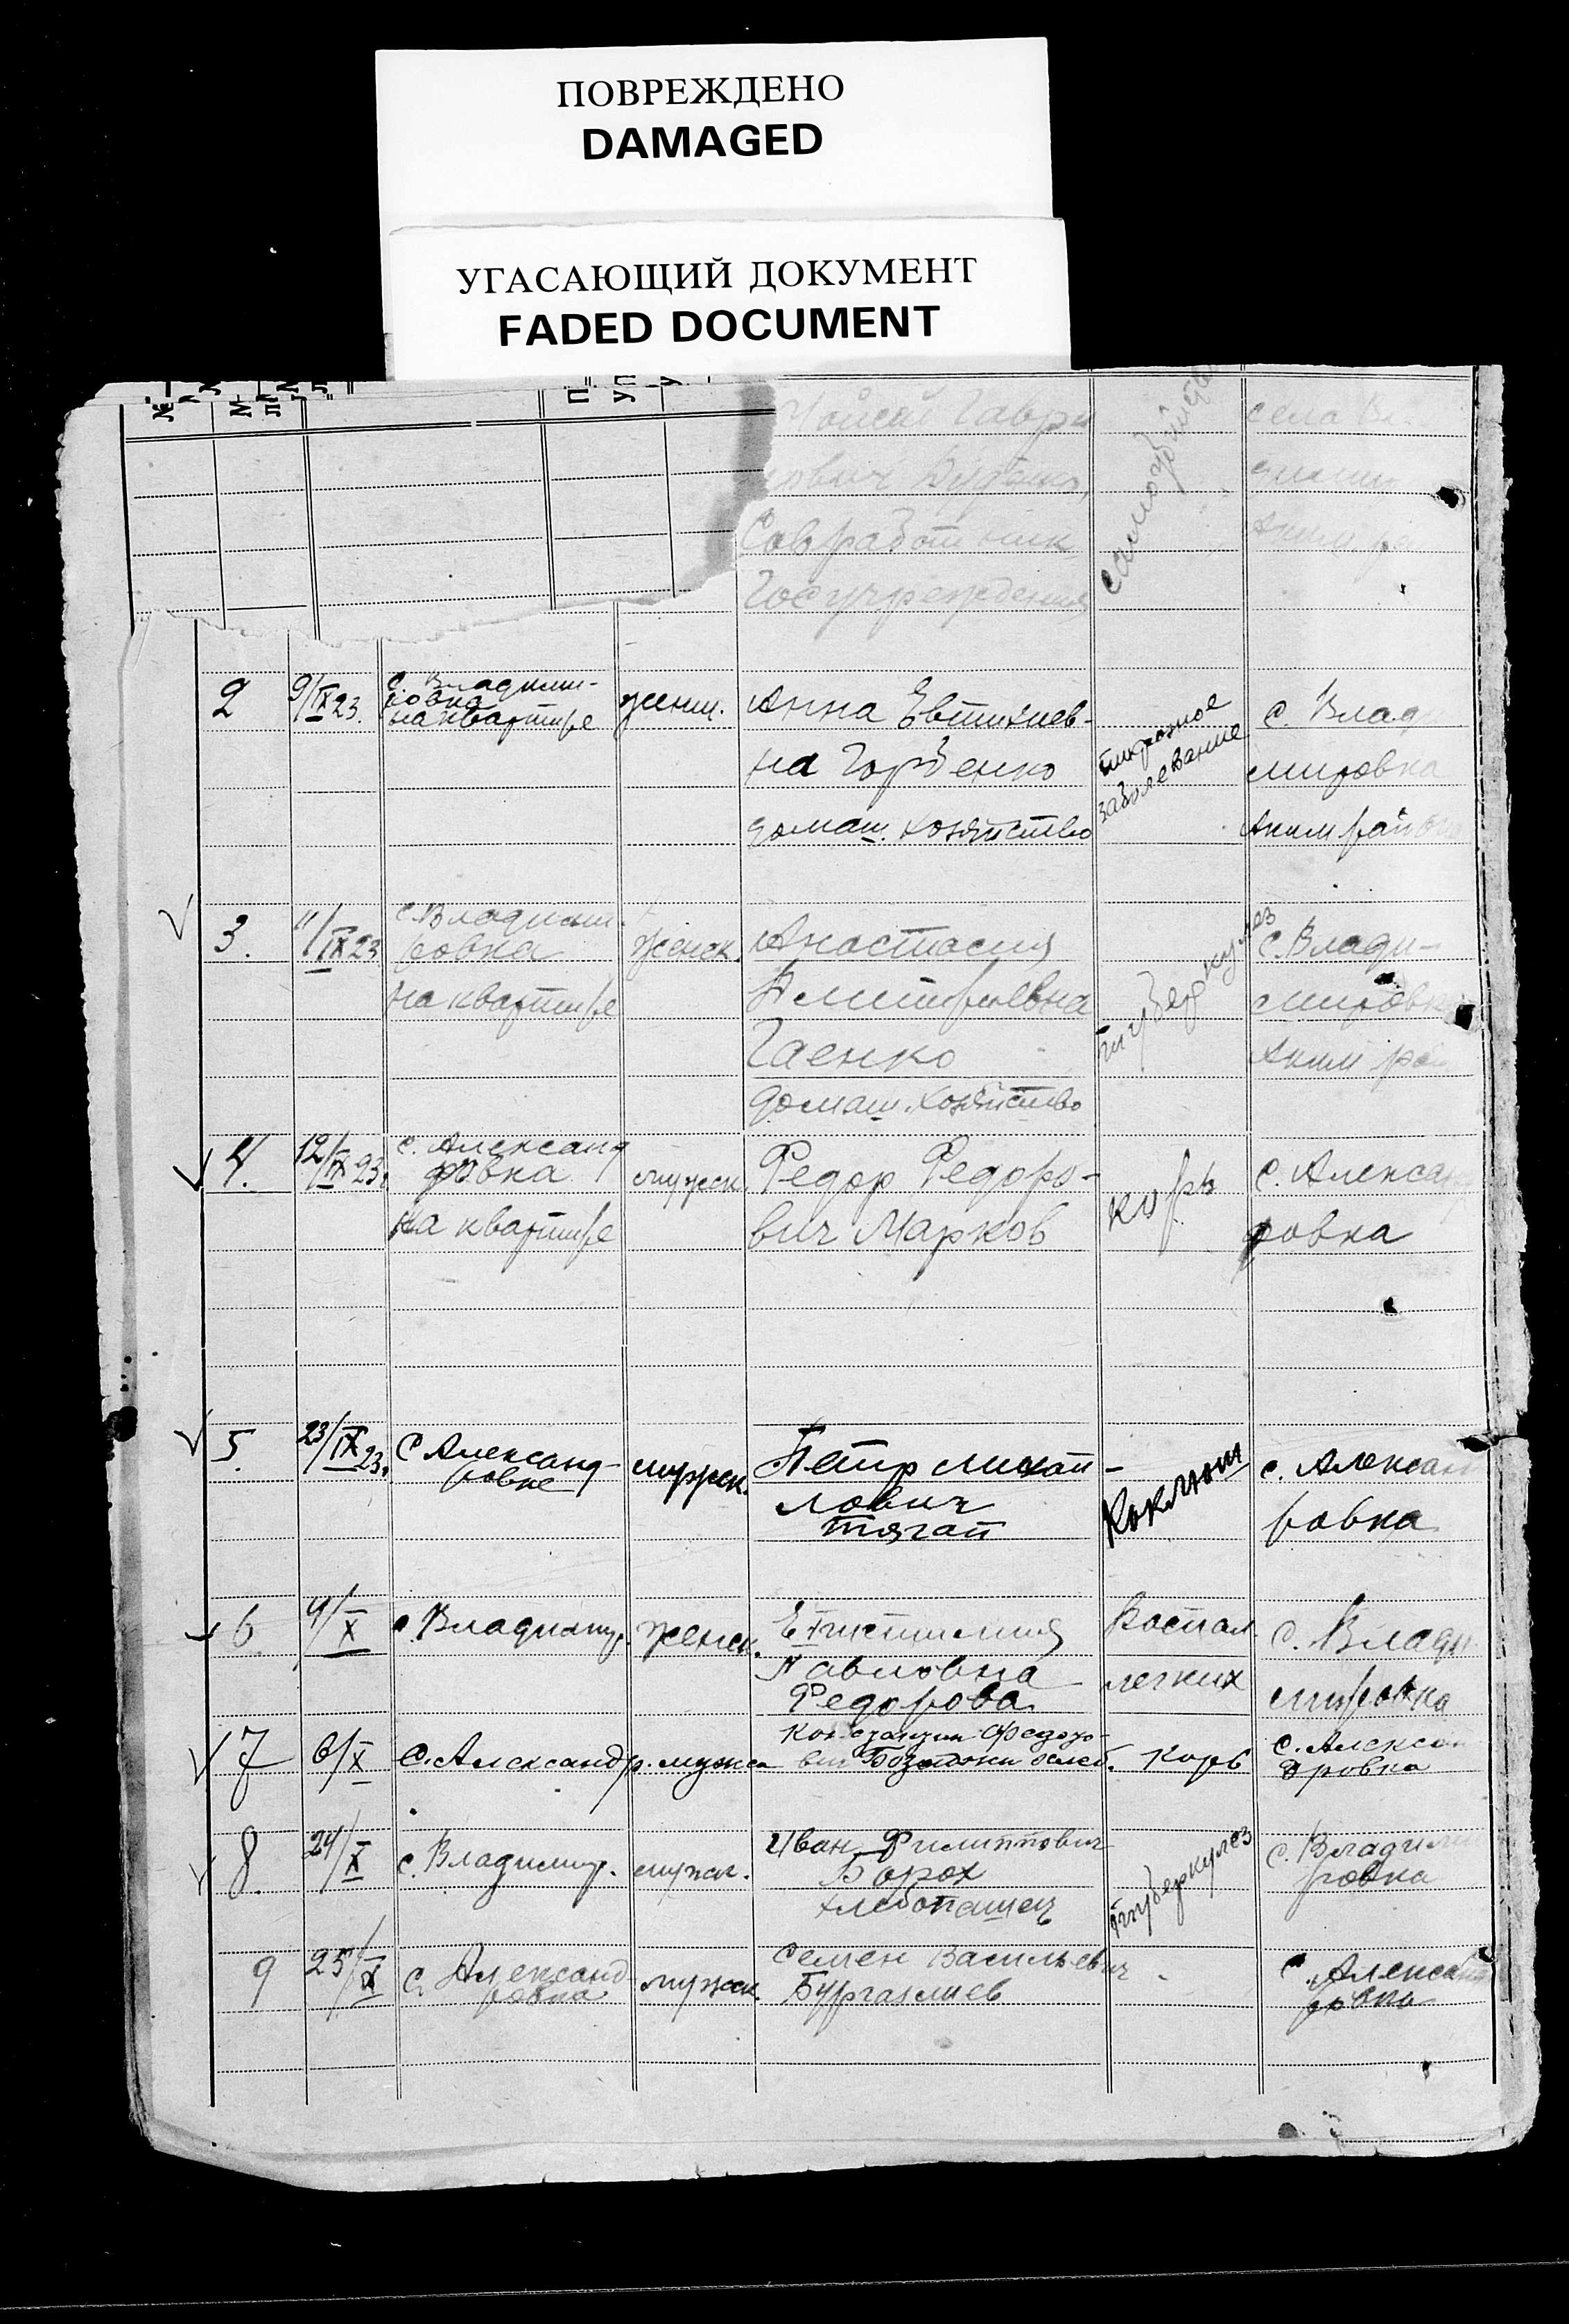 ПОВРЕЖДЕНО
DAMAGED
УГАСАЮЩИЙ ДОКУМЕНТ
FADED DOCUMENT
Гаври
Совработник
Госучреждения
самоубийство
село
2
9/IX 23.
с. Владими-
ровка
на квартире
женщ.
Анна Евтихиев-
на Горбенко
домаш. хозяйство
заболевание
с. Влад
мировка
Аким района
3.
11/IX 23
с. Владими
ровка
на квартире
женск.
Анастасия
Дмитриевна
Гаенко
домаш. хозяйство
туберкулез
с. Влади-
мировка
Аким ра
4.
12/IX 23.
с. Александ
ровка
на квартире
мужск.
Федор Федоро-
вич Марков
корь
с. Алексан
ровка
5.
23/IX 23.
С Александ-
ровке
мужск.
Петр Михай-
лович
Тягай
Коклюш
с. Алексан
ровка
6.
4/X
с. Владимир.
женск.
Епистимия
Павловна
Федорова
Воспал.
легких
с. Влади
мировка
7
6/X
С. Александр.
мужск
Федоро-
вич
Корь
с. Алексан
дровка
8.
24/X
с. Владимир.
мужск.
Иван Филиппович
Борох
хлебопашец
туберкулез
с. Владими
ровка
9
25/X
С. Александ
ровка
мужск.
Семен Васильевич
-
С. Александ
ровка